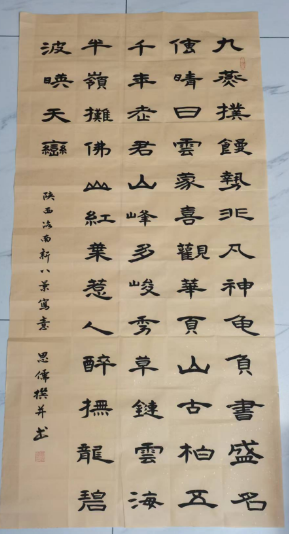 九蒸撲饅勢非凡神龜負書盛名
傳晴日雲蒙喜觀華頁山古柏五
千年老君山峰多峻秀草鏈雲海
半嶺攤佛山紅葉惹人醉撫龍碧
波暎天巒
陝西洛南新八景寫意
思偉撰并書